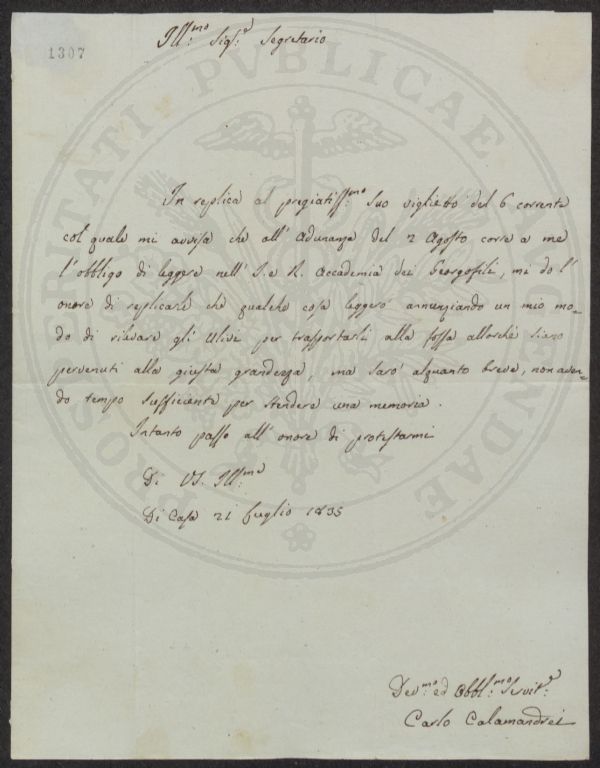 1307
Ill:mo Sigr: Segretario
In replica al pregiatiss:mo suo viglietto del 6 corrente
col quale mi avvisa che all' Adunanza del 2 Agosto corre a me
l' obbligo di leggere nell' I. e R. Accademia dei Georgofili, mi do l'
onore di replicarle che qualche cosa leggerò annunziando un mio mo-
do di rilevare gl' Ulivi per trasportarli alla fossa allorchè siano
pervenuti alla giusta grandezza, ma sarò alquanto breve, non aven-
do tempo sufficiente per stendere una memoria.
Intanto passo all' onore di protestarmi
Di VS. Ill:ma
Di Casa 21 Luglio 1835
Dev:mo ed Obbl:mo Servit:e
Carlo Calamandrei
PROSPERITATI PVBLICAE AVGENDAE